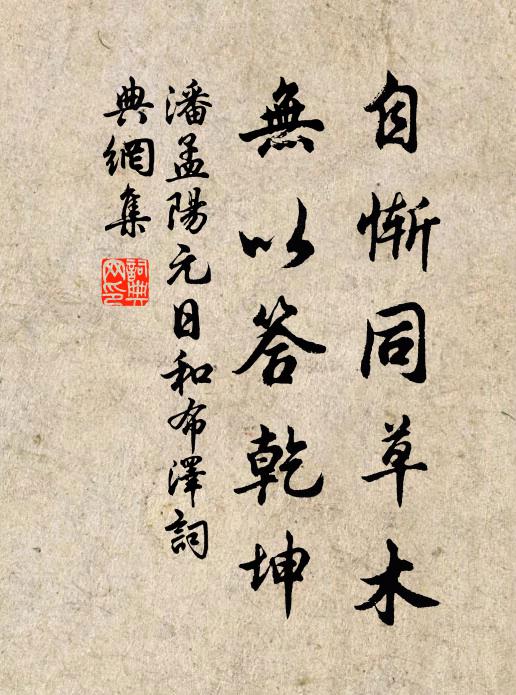 自慚同草木
無以答乾坤
潘孟陽元日和布澤詞
典網集
詞典網印